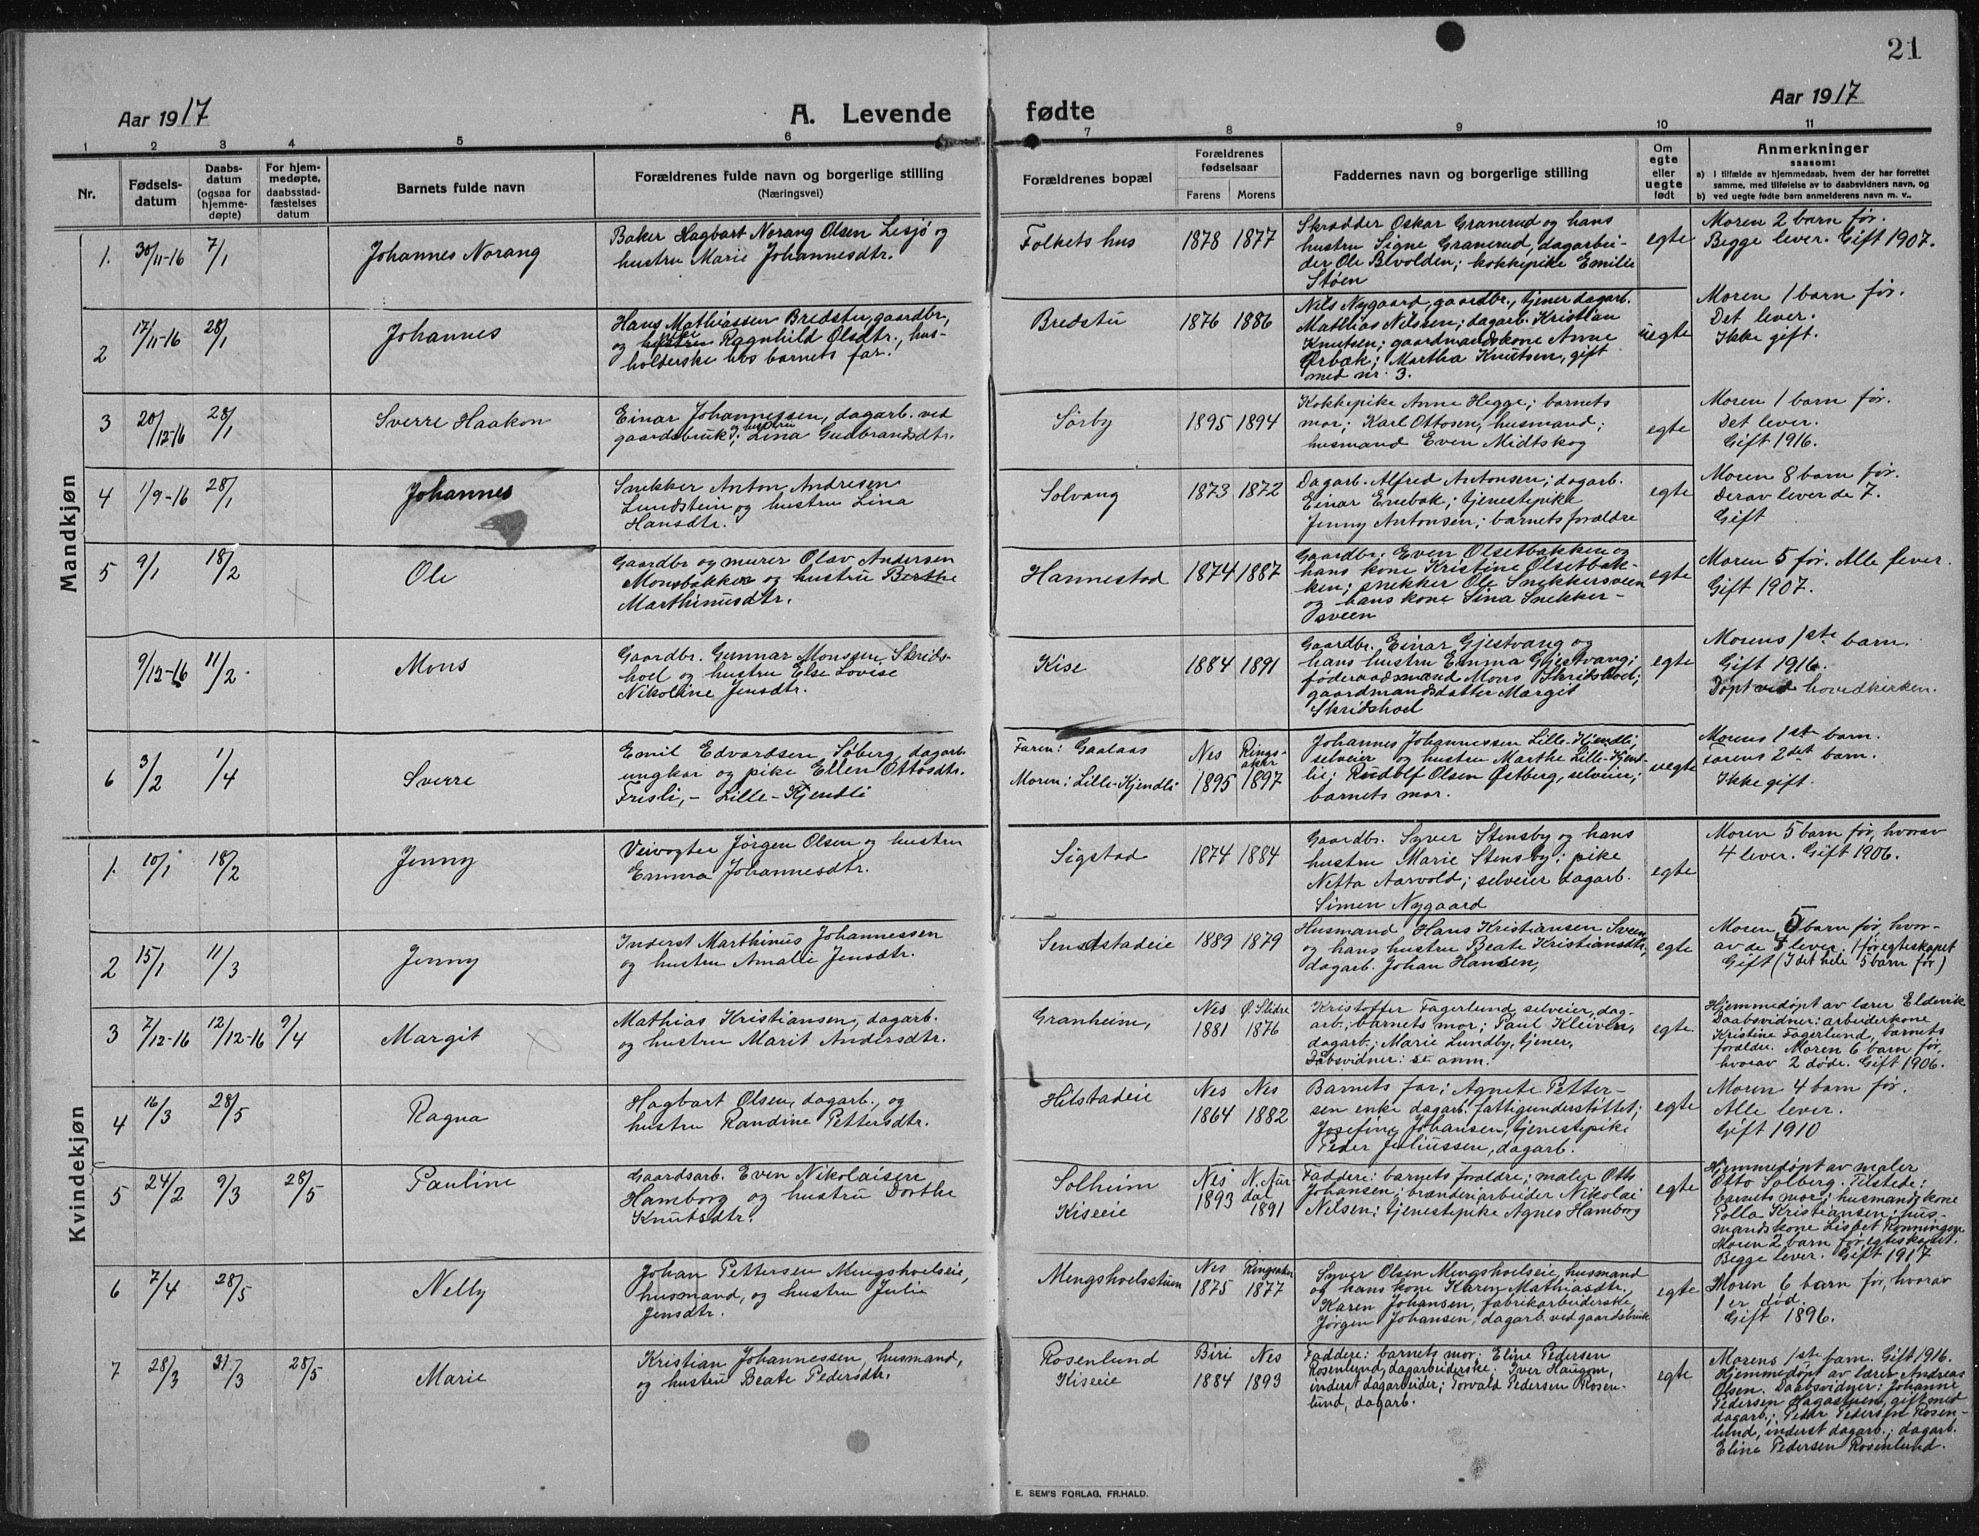 21
Aar 1917
A. Levende fødte
Aar 1917
1 2 3 4 5 6 7 8 9 10 11
Nr.
Fødsels-
datum
Daabs-
datum
(ogsaa for
hjemme-
døpte)
For hjem-
medøpte,
daabsstad-
fæstelses
datum
Barnets fulde navn
Forældrenes fulde navn og borgerlige stilling
(Næringsvei)
Forældrenes bopæl
Forældrenes
fødselsaar
Farens Morens
Faddernes navn og borgerlige stilling
Om
egte
eller
uegte
født
Anmerkninger
saasom:
a) I tilfælde av hjemmedaab, hvem der har forrettet
samme, med tilføielse av to daabsvidners navn, og
b) ved uegte fødte barn anmelderens navn m. v..
Mandkjøn
1. 30/11-16 7/1
Johannes Norang
Baker Hagbart Norang Olsen Lesjø og
hustru Marie Johannesdtr.
Folkets hus
1878 1877
Skrædder Oskar Granerud og hans
hustru Signe Granerud, dagarbei-
der Ole Bevolden; kokkepike Emilie
Støen
egte
Moren 2 barn før.
Begge lever. Gift 1907.
2 17/11-16 28/1
Johannes
Hans Mathiassen Bredstu, gaardbr.,
og hustru Ragnhild Olsdtr., hus-
holderske hos barnets far.
Bredstu
1876 1886
Nils Nygaard, gaardbr., tjener dagarb.
Mathias Nilssen; dagarb. Kristian
Knutsen; gaardmandskone Anne
Ørbæk; Martha Knutsen, gift
med nr. 3.
uegte
Moren 1 barn før.
Det lever.
Ikke gift.
3 20/12-16 28/1
Sverre Haakon
Einar Johannessen, dagarb. ved
gaardsbruk; og hustru Lina Gudbrandsdtr.
Sørby
1895 1894
Kokkepike Anne Hegge; barnets
mor; Karl Ottosen, husmand;
husmand Even Midtskog
egte
Moren 1 barn før.
Det lever.
Gift 1916.
4 1/9-16 28/1
Johannes
Snekker Anton Andresen
Lundstein og hustru Lina
Hansdtr.
Solvang
1873 1872
Dagarb. Alfred Antonsen; dagarb.
Einar Enebak; tjenestepike
Jenny Antonsen; barnets forældre
egte
Moren 8 barn før.
Derav lever de 7.
Gift
5 9/1 18/2
Ole
Gaardbr og murer Olav Andersen
Monsbakken og hustru Berthe
Marthinusdtr.
Hannestad
1874 1887
Gaardbr. Even Olsetbakken og
hans kone Kristine Olsetbak-
ken; snekker Ole Snekkersveen
og hans kone Sina Snekker-
sveen
egte
Moren 5 før. Alle lever.
Gift 1907.
9/12-16 11/2
Mons
Gaardbr. Gunnar Monssen Skrids-
hoel og hustru Else Lovise
Nikoline Jensdtr.
Kise
1884 1891
Gaardbr. Einar Gjestvang og
hans hustru Emma Gjestvang;
føderaadsmand Mons Skridshoel;
gaardmandsdatter Margit
Skridshoel
egte
Morens 1ste barn.
Gift 1916.
Døpt ved hovedkirken.
6 3/2 1/4
Sverre
Emil Edvardsen Søberg, dagarb.
ungkar og pike Ellen Ottosdtr.
Frisli, - Lille-Kjendli
Faren: Gaalaas
Moren: Lille-Kjendli
Nes Rings-
aker
1895 1897
Johannes Johannessen Lille-Kjendli,
selveier og hustru Marthe Lille-Kjend-
li; Rudolf Olsen Østberg, selveier;
barnets mor.
uegte
Morens 1st barn.
Farens 2det barn.
Ikke gift.
Kvindekjøn
1. 10/1 18/2
Jenny
Veivogter Jørgen Olsen og hustru
Emma Johannesdtr.
Sigstad
1874 1884
Gaardbr. Syver Stensby og hans
hustru Marie Stensby; pike
Netta Aarvold; selveier dagarb.
Simen Nygaard
egte
Moren 5 barn før, hvorav
4 lever. Gift 1906.
2 15/1 11/3
Jenny
Inderst Marthinus Johannessen
og hustru Amalie Jensdtr.
Senstadeie
1889 1879
Husmand Hans Kristiansen Sveen
og hans hustru Beate Kristiansdtr.,
dagarb. Johan Hansen,
egte
Moren 5 barn før, hvor-
av de 4 lever. 1 før egteskapet
Gift (I det hele 5 barn før)
3 7/12-16 12/12-16 9/4
Margit
Mathias Kristiansen, dagarb.
og hustru Marit Andersdtr.
Granheim,
Nes Ø. Slidre
1881 1876
Kristoffer Fagerlund, selveier, dag-
arb.; barnets mor; Paul Kleiven,
dagarb.; Marie Lundby, tjener,
Daabsvidner: se anm.
egte.
Hjemmedøpt av lærer Eldevik
Daabsvidner: arbeiderkone
Kristine Fagerlund, barnets
forældre. Moren 6 barn før,
hvorav 2 døde. Gift 1906.
4 16/3 28/5
Ragna
Hagbart Olsen, dagarb., og
hustru Randine Pettersdtr.
Hilstadeie
Nes Nes
1864 1882
Barnets far; Agnete Petter-
sen enke dagarb. fattigunderstøttet;
Josefine Johansen, tjenestepike
Peder Juliussen, dagarb.
egte
Moren 4 barn før.
Alle lever.
Gift 1910
5 24/2 9/3 28/5
Pauline
Gaardsarb. Even Nikolaisen
Hamborg og hustru Dorthe
Knutsdtr.
Solheim
Kiseeie
Nes N. Aur
dal
1893 1891
Faddere: barnets forældre; maler Otto
Johansen; brænderiarbeider Nikolai
Nilsen; tjenestepike Agnes Hamborg
egte
Hjemmedøpt av maler
Otto Solberg. Tilstede:
barnets mor; husmandskone
Polla Kristiansen; hus-
mandskone Lisbet Rønningen
Moren 2 barn før egteskapet.
Begge lever. Gift 1917
6 7/4 28/5
Nelly
Johan Pettersen Mengshoelseie,
husmand, og hustru Julie
Jensdtr.
Mengshoelsstuen
Nes Ringsaker
1875 1877
Syver Olsen Mengshoelseie, husmand
og hans kone Karen Mathiasdtr.,
Karen Johansen, fabrikarbeiderske,
Jørgen Johansen, dagarb. ved gaardsbruk
egte
Moren 6 barn før, hvorav
1 er død.
Gift 1896.
7 28/3 31/3 28/5
Marie
Kristian Johannessen, husmand,
og hustru Beate Pedersdtr.
Rosenlund
Kiseeie
Biri Nes
1884 1893
Faddere: barnets mor; Eline Pedersen
Rosenlund, dagarbeiderske. Iver Haugom,
inderst dagarbeider; Torvald Pedersen Rosen-
lund, dagarb.
egte
Morens 1st barn. Gift 1916.
Hjemmedøpt av lærer Andreas
Olsen. Daabsvidner: Johanne
Pedersen Hagastuen, gift med
dagarb.; Peder Pedersen Rosen-
lund, inderst dagarb.; dagarb.
Eline Pedersen Rosenlund.
E. SEM'S FORLAG, FR.HALD.